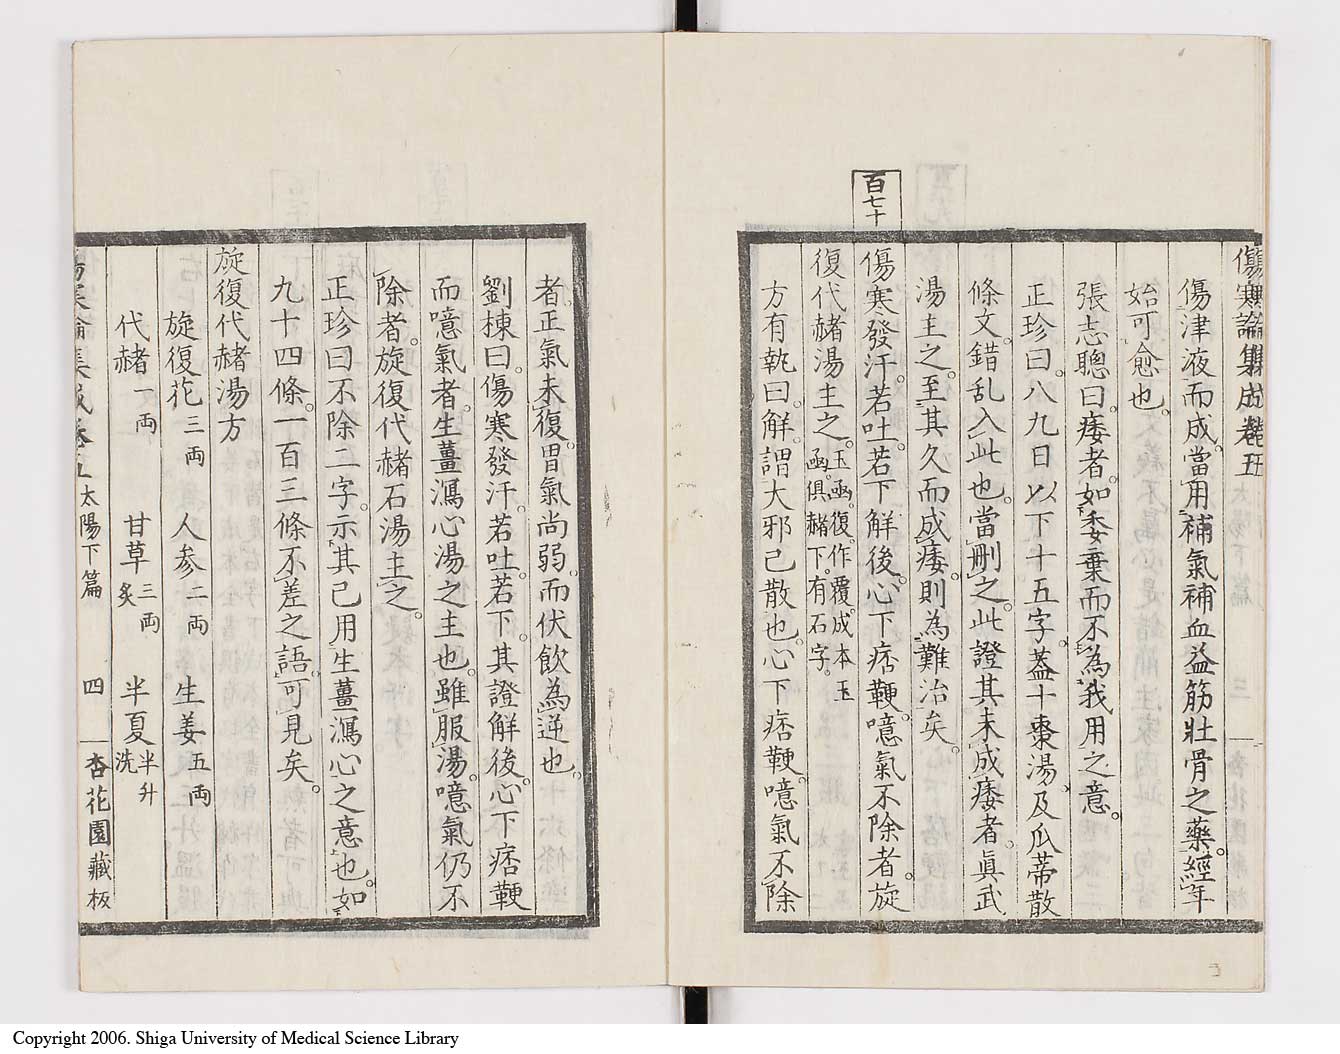 傷寒論集成卷五
傷津液而成。當用補氣補血益筋壯骨之藥。經年
始可愈也。
張志聰曰。痿者。如委棄而不為我用之意。
正珍曰。八九日以下十五字。葢十棗湯。及瓜蒂散
條文。錯乱入此也。當刪之。此證其未成痿者。眞武
湯主之。至其久而成痿。則為難治矣。
百七十
傷寒發汗。若吐。若下解後。心下痞鞕。噫氣不除者。旋
復代赭湯主之。玉函。復。作覆。成本玉
函。俱。赭下。有石字。
方有執曰。解。謂大邪已散也。心下痞鞕。噫氣不除
者。正氣未復。胃氣尚弱。而伏飲為逆也。
劉棟曰。傷寒發汗。若吐。若下。其證解後。心下痞鞕
而噫氣者。生薑瀉心湯之主也。雖服湯。噫氣仍不
除者。旋復代赭石湯主之。
正珍曰。不除二字。示其已用生薑瀉心之意也。如
九十四條。一百三條不差之語。可見矣。
旋復代赭湯方
旋復花三両 人参二両 生姜五両
代赭一両 甘草三両炙 半夏半升洗
傷寒論集成卷五 太陽下篇 四 杏花園藏板
Copyright 2006. Shiga University of Medical Science Library